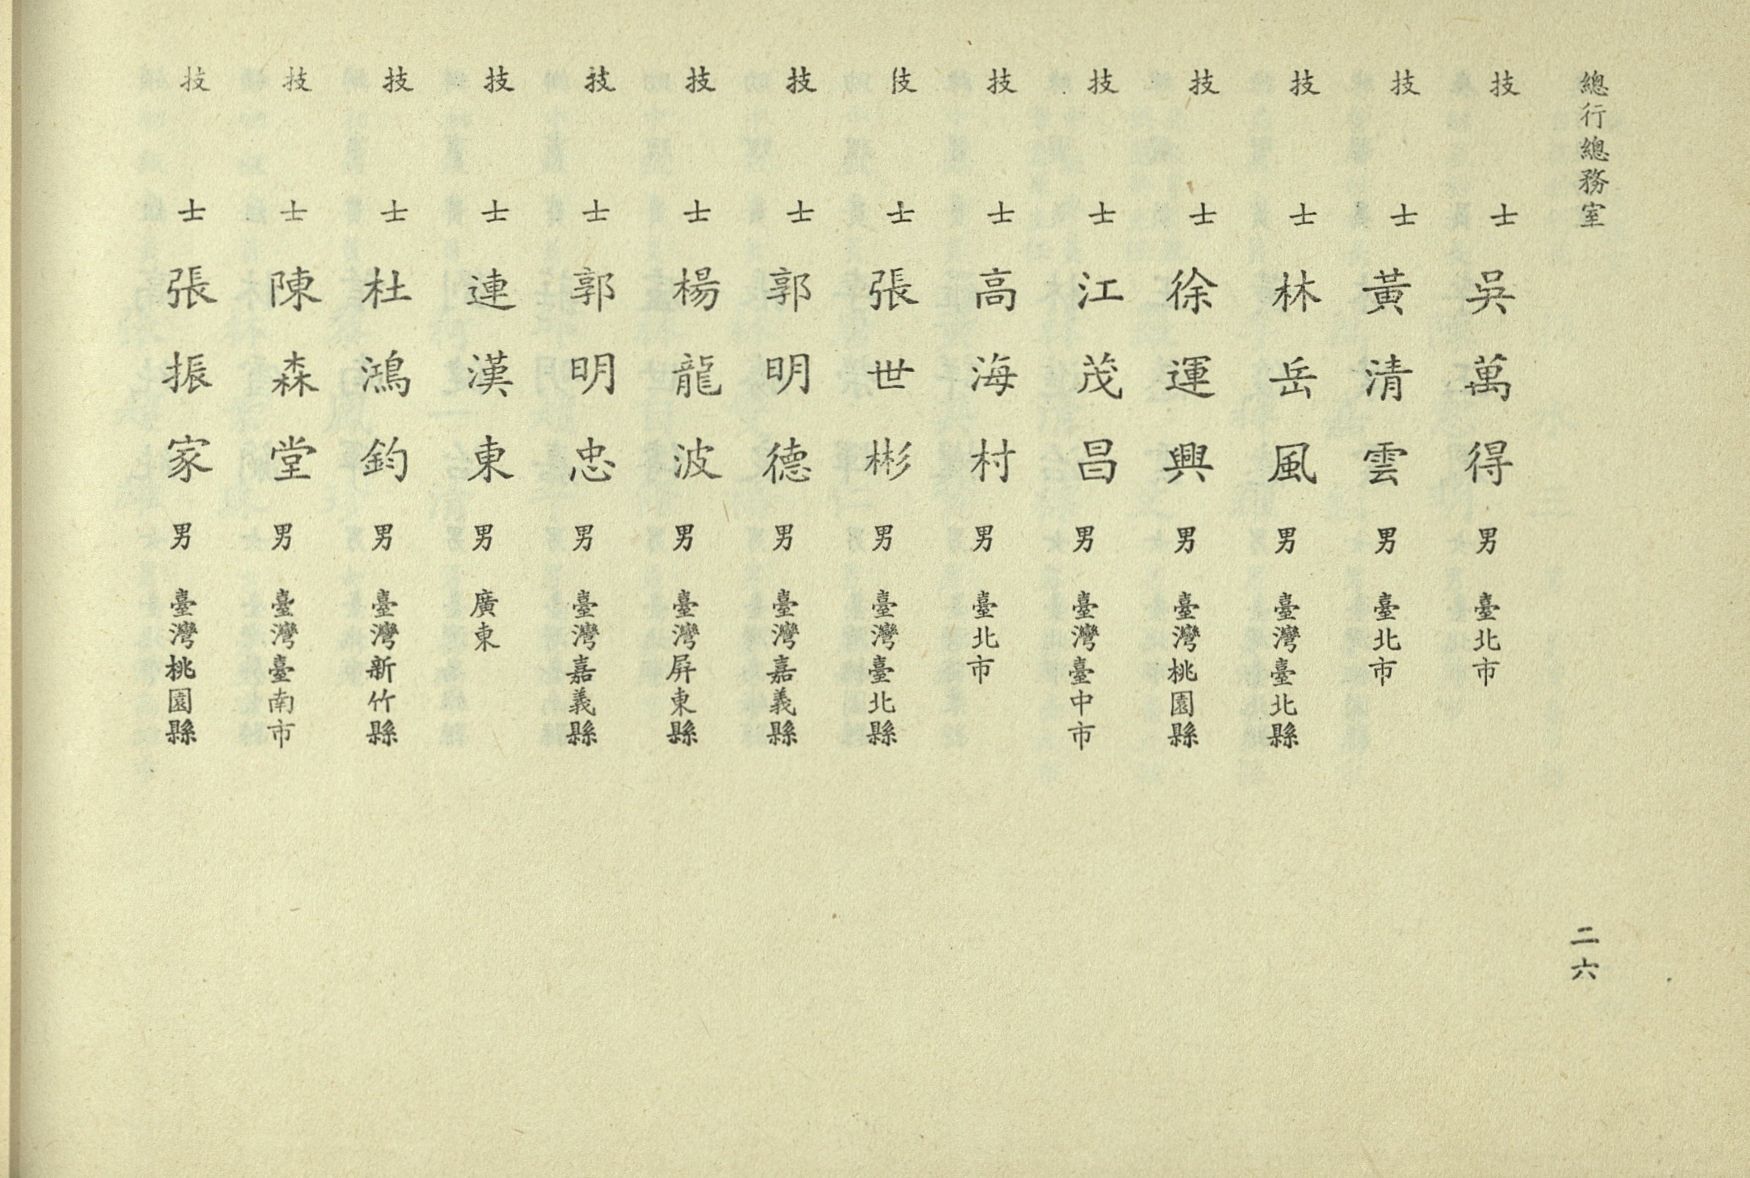 總行總務室
二六
技士 吳萬得 男 臺北市
技士 黃清雲 男 臺北市
技士 林岳風 男 臺灣臺北縣
技士 徐運興 男 臺灣桃園縣
技士 江茂昌 男 臺灣臺中市
技士 高海村 男 臺北市
技士 張世彬 男 臺灣臺北縣
技士 郭明德 男 臺灣嘉義縣
技士 楊龍波 男 臺灣屏東縣
技士 郭明忠 男 臺灣嘉義縣
技士 連漢東 男 廣東
技士 杜鴻鈞 男 臺灣新竹縣
技士 陳森堂 男 臺灣臺南市
技士 張振家 男 臺灣桃園縣